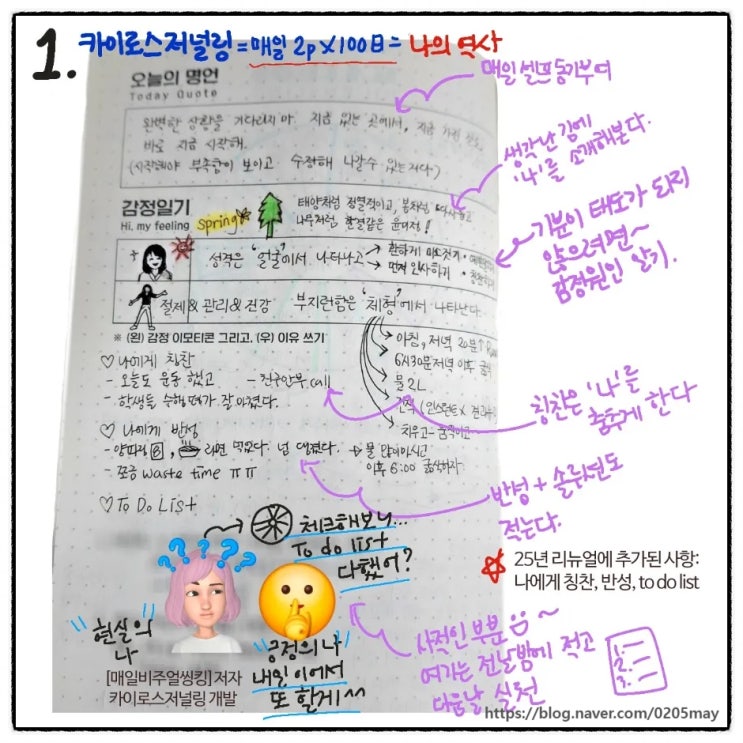 1. 카이로스저널링 = 매일 2p x 100日 = 나의 역사
오늘의 명언
Today Quote
매일 셀프 동기부여
완벽한 상황을 기다리지 마. 지금 있는 곳에서, 지금 가진
바로 지금 시작해.
(시작해야 부족함이 보이고 수정해 나갈 수 있는거다)
생각난 김에
'나'를 소개해본다.
감정일기
Hi, my feeling
Spring
태양처럼 정열적이고, 봄처럼
나무처럼 한결같은
기분이 태도가 되지
않으려면~
감정원인 알기.
성격은 '얼굴'에서 나타나고
→ 환하게 미소짓기
→ 먼저 인사하기
절제 & 관리 & 건강 부지런함은 '체형'에서 나타난다.
※ (왼) 감정 이모티콘 그리고, (우) 이유 쓰기
아침, 저녁 20분↑
6시30분 저녁 이후
물 2L
간식 (인스턴트x
치우고-움직이고
♡ 나에게 칭찬
- 오늘도 운동 했고 - 친구안부 call
- 학생들 수행평가 잘 마쳤다.
칭찬은 '나'를
춤추게 한다
♡ 나에게 반성
라면 먹었다. 넘 → 물 많이마시고
- 쪼금 waste time ㅠㅠ 이후 6:00 금식하자
반성 + 솔루션도
적는다.
♡ To Do List
체크해보니...
To do list
다했어?
25년 리뉴얼에 추가된 사항:
나에게 칭찬, 반성, to do list
? ? ? ? ?
"현실의
나"
"긍정의 나"
내일 이어서
또 할게^^
[매일비주얼씽킹] 저자
카이로스저널링 개발
사적인 부분 ~
여기는 전날밤에 적고
다음날 실천
1.
2.
3.
https://blog.naver.com/0205may